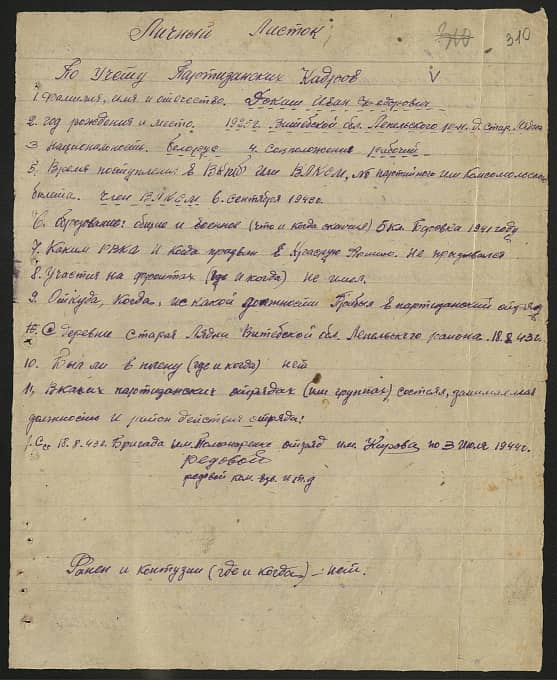 Личный Листок
310 310
По учёту Партизанских Кадров V
1. фамилия, имя и отчество. Иван Федорович
2. год рождения и место. 1925г. Витебской обл. Лепельского р-н. д. Стар. Лядны
3. Национальность. белорус 4. Соцположение рабочий
5. Время поступления в ВКПб или ВЛКСМ, № партийного или комсомольского
билета. член ВЛКСМ 6. сентября 1940г.
6. образование: общие и военное (что и когда окончил) 5 кл. Боровка 1941 году
7. Каким РВКА и когда призван в Красную Армию. Не призывался
8. Участия на фронтах (где и когда) не имел.
9. Откуда, когда, и с какой должности Прибыл в партизанский отряд
С деревни Старая Лядни Витебской обл. Лепельского района. 18.8.43г.
10. Был ли в плену (где и когда) нет
11. В каких партизанских отрядах (или группах) состоял, занимаемая
должностью и район действия отряда:
1. С 18.8.43г. Бригада им. отряд им. Кирова по 3 июля 1944г.
редовой
редовой ком. взв. и т.д
Ранен и контузии (где и когда) – нет.